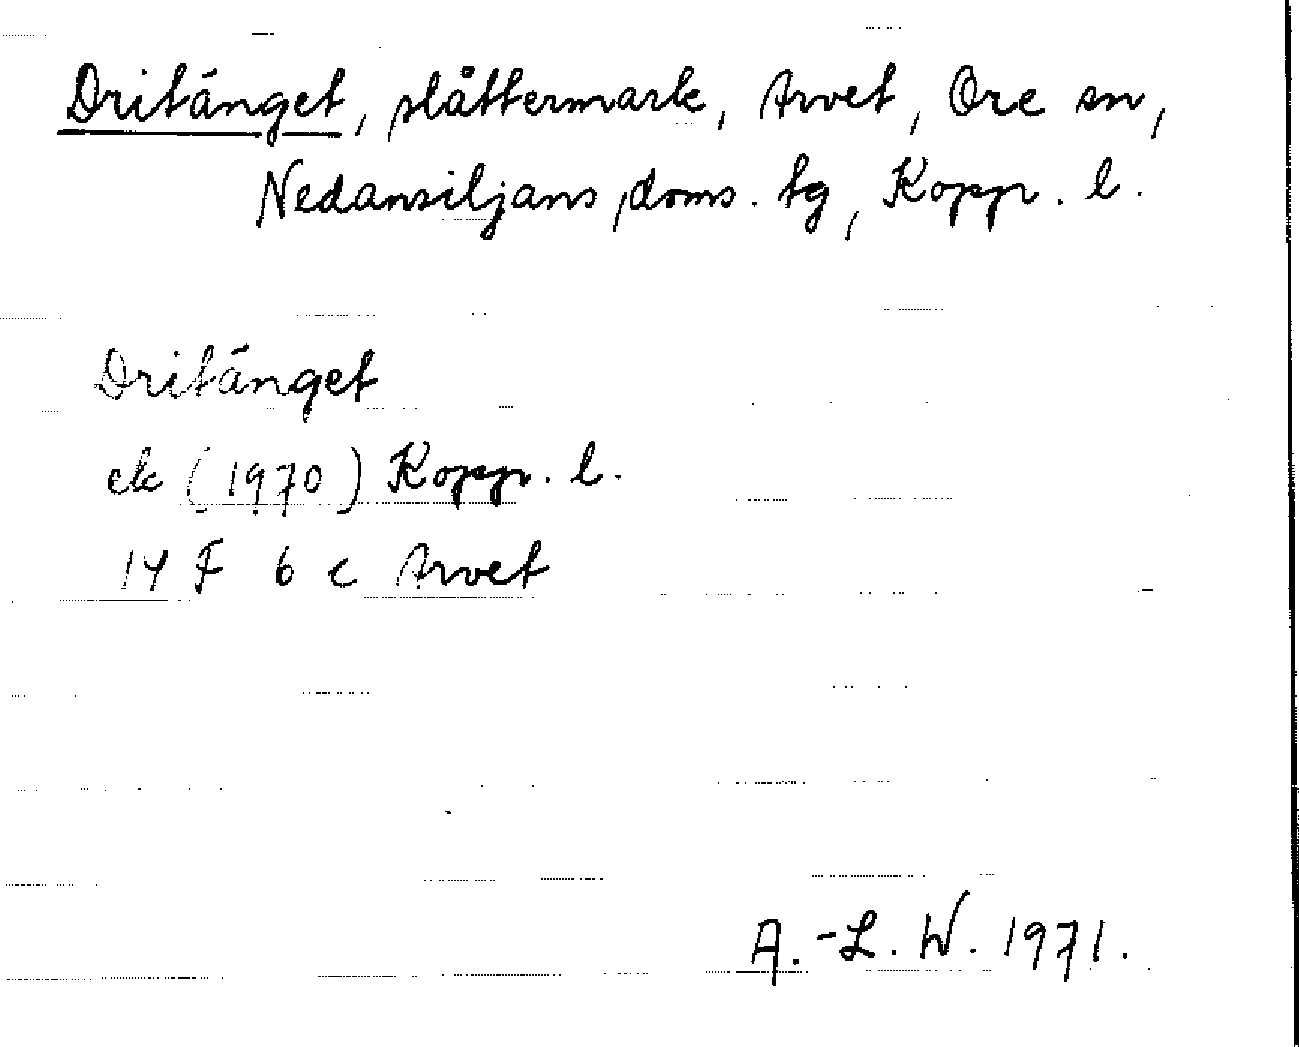 Dritänget, slåttermark, Arvet, Ore sn,
Nedansiljans doms. tg, Kopp. l.
Dritänget
ek (1970) Kopp. l.
14 F 6 c Arvet
A.-L. W. 1971.